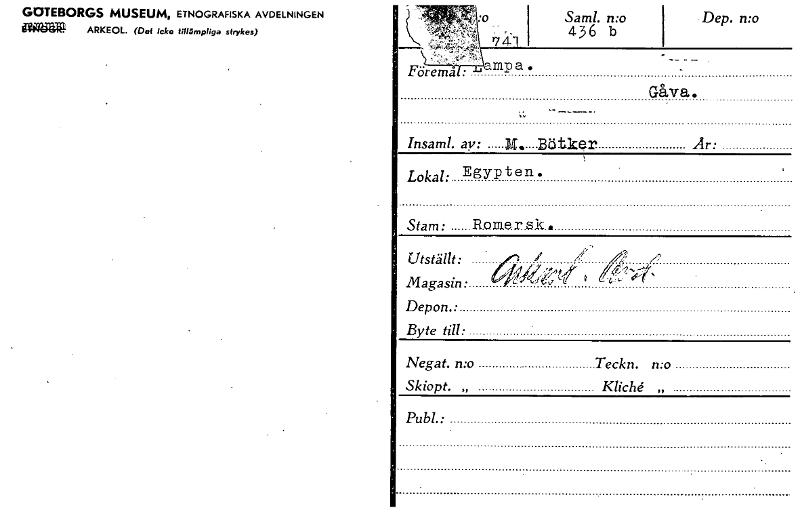 GÖTEBORGS MUSEUM, ETNOGRAFISKA AVDELNINGEN
ARKEOL. (Det icke tillämpliga strykes)
:o Saml. n:o Dep. n:o
741 436 b
Föremål: Lampa.
Gåva.
Insaml. av: M. Bötker År:
Lokal: Egypten.
Stam: Romersk.
Utställt:
Magasin:
Depon.:
Byte till:
Negat. n:o Teckn. n:o
Skiopt. „ Kliché „
Publ.: